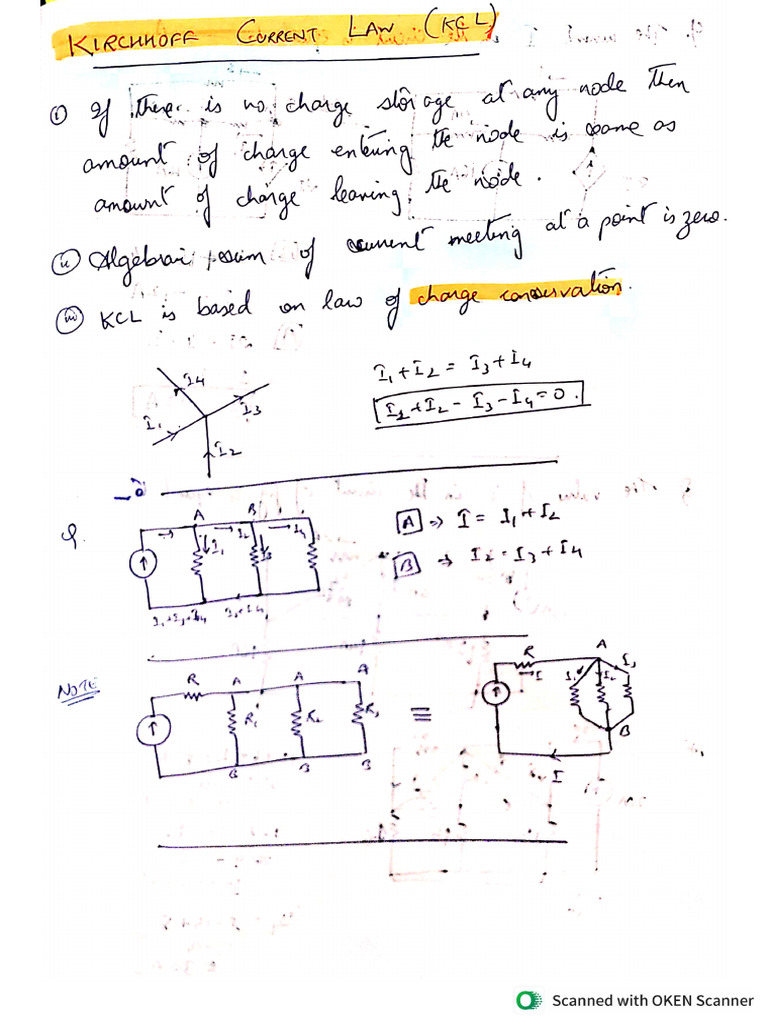 KIRCHHOFF CURRENT LAW (KCL)
(i) If there is no charge storage at any node then
amount of charge entering the node is same as
amount of charge leaving the node.
(ii) Algebraic sum of current meeting at a point is zero.
(iii) KCL is based on law of charge conservation.
I4
I3
I1
I2
I1 + I2 = I3 + I4
I1 + I2 - I3 - I4 = 0.
Q.
A B
I2 I4
I1 I3
I1+I3+I4 I3+I4
A ⇒ I = I1 + I2
B ⇒ I2 = I3 + I4
NOTE
R A A A
R1 R2 R3
B B B
≡
R A
I I1 I2 I3
B
I
Scanned with OKEN Scanner